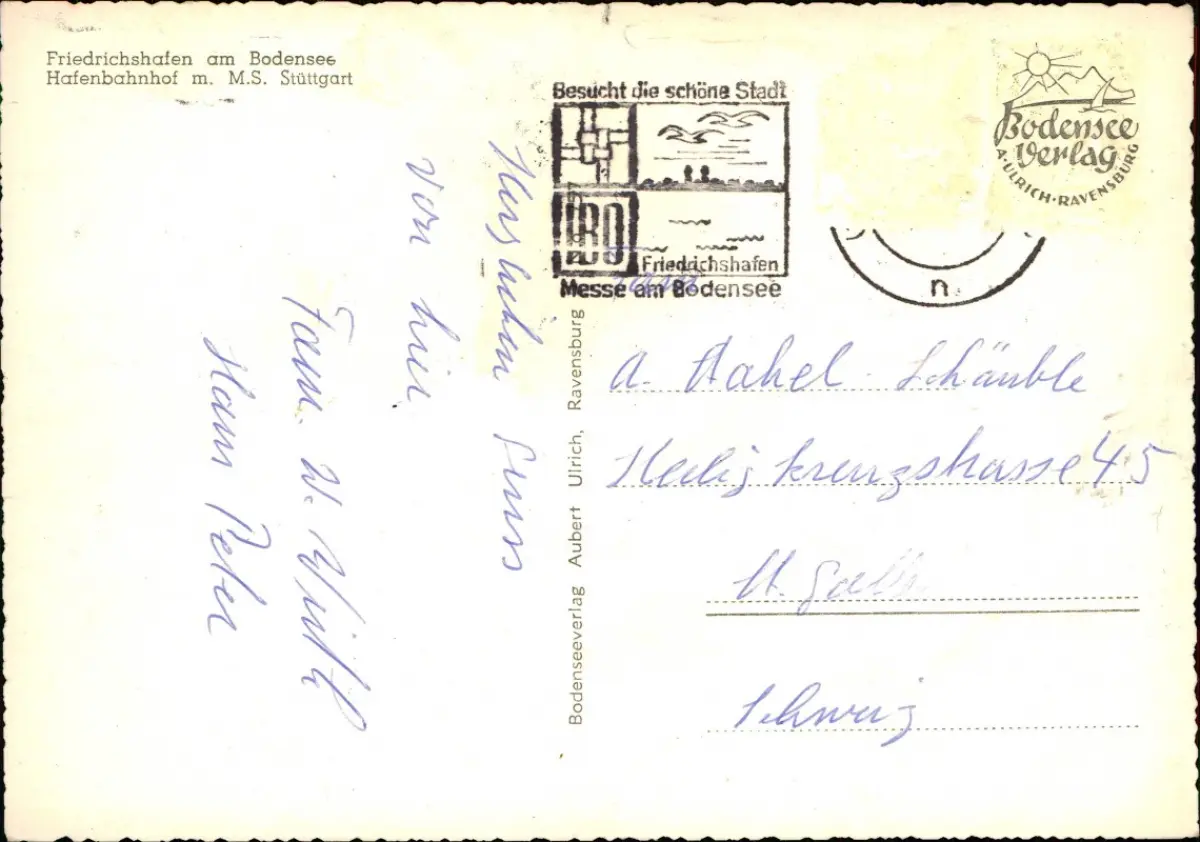 Friedrichshafen am Bodensee
Hafenbahnhof m. M.S. Stüttgart
Besucht die schöne Stadt
IBO
Friedrichshafen
Messe am Bodensee
Bodensee
Verlag
A. ULRICH · RAVENSBURG
n
Bodenseeverlag Aubert Ulrich, Ravensburg
Gruss
von hier
Fam. W.
Hans Peter
Fam
A. Schäuble
Heiligkreuzstrasse 45
St. Gallen
Schweiz